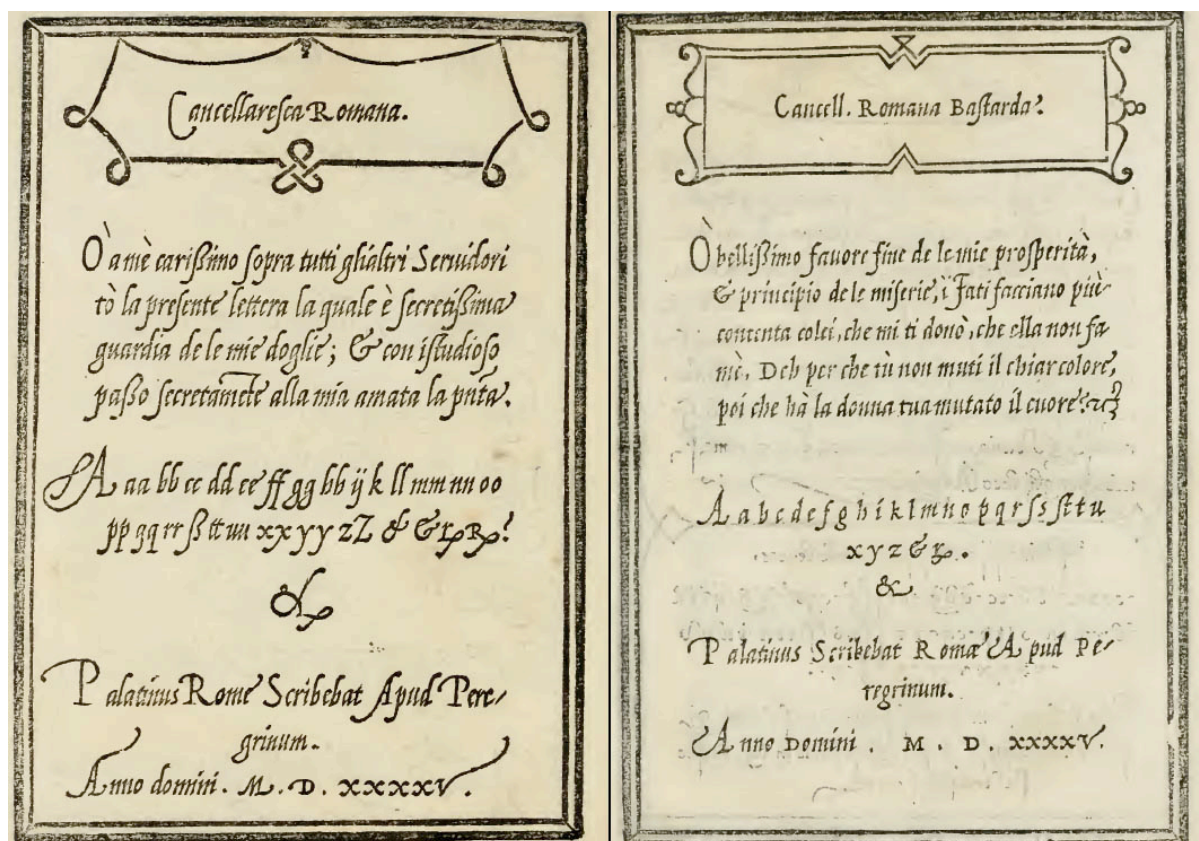 Cancellaresca Romana.
Ò a mè carißimo sopra tutti glialtri Seruidori
tò la presente lettera la quale è secretißima
guardia de le mie doglie; & con istudioso
paßo secretam̃ete alla mia amata la pñta.
A aa bb cc dd ee ff gg hh ij k ll mm nn oo
pp qq rr ß tt uu xx yy zZ & &
&
Palatinus Rome Scribebat Apud Pere/
grinum.
Anno domini. M. D. XXXXV.
Cancell. Romana Bastarda.
Ò bellißimo fauore fine de le mie prosperità,
& principio de le miserie, i Fati facciano più
contenta colei, che mi ti donò, che ella non fa
mè. Deh per che tù non muti il chiar colore,
poi che hà la donna tua mutato il cuore?
A a b c d e f g h i k l m n o p q r ſ s ſt t u
x y z &
&
Palatinus Scribebat Romæ Apud Pe/
regrinum.
Anno Domini. M. D. XXXXV.